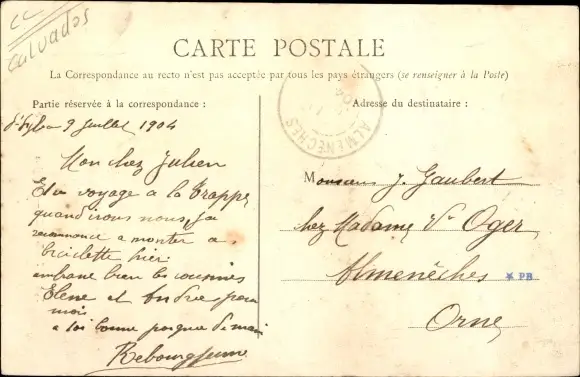 Calvados
CARTE POSTALE
La Correspondance au recto n'est pas acceptée par tous les pays étrangers (se renseigner à la Poste)
Partie réservée à la correspondance :
Adresse du destinataire :
ALMENÊCHES
9 Juillet 1904
Mon chez Julien
Et a voyage a la Trappe
quand irons nous, j'ai
recommance a monter a
biciclette hier.
embrase bien les cousines
Elene et Andree pour
moi
a toi bonne poigne de main
Rebourg jeune
Monsieur J. Gaubert
chez Madame Ve Oger
Almenêches
* PB
Orne